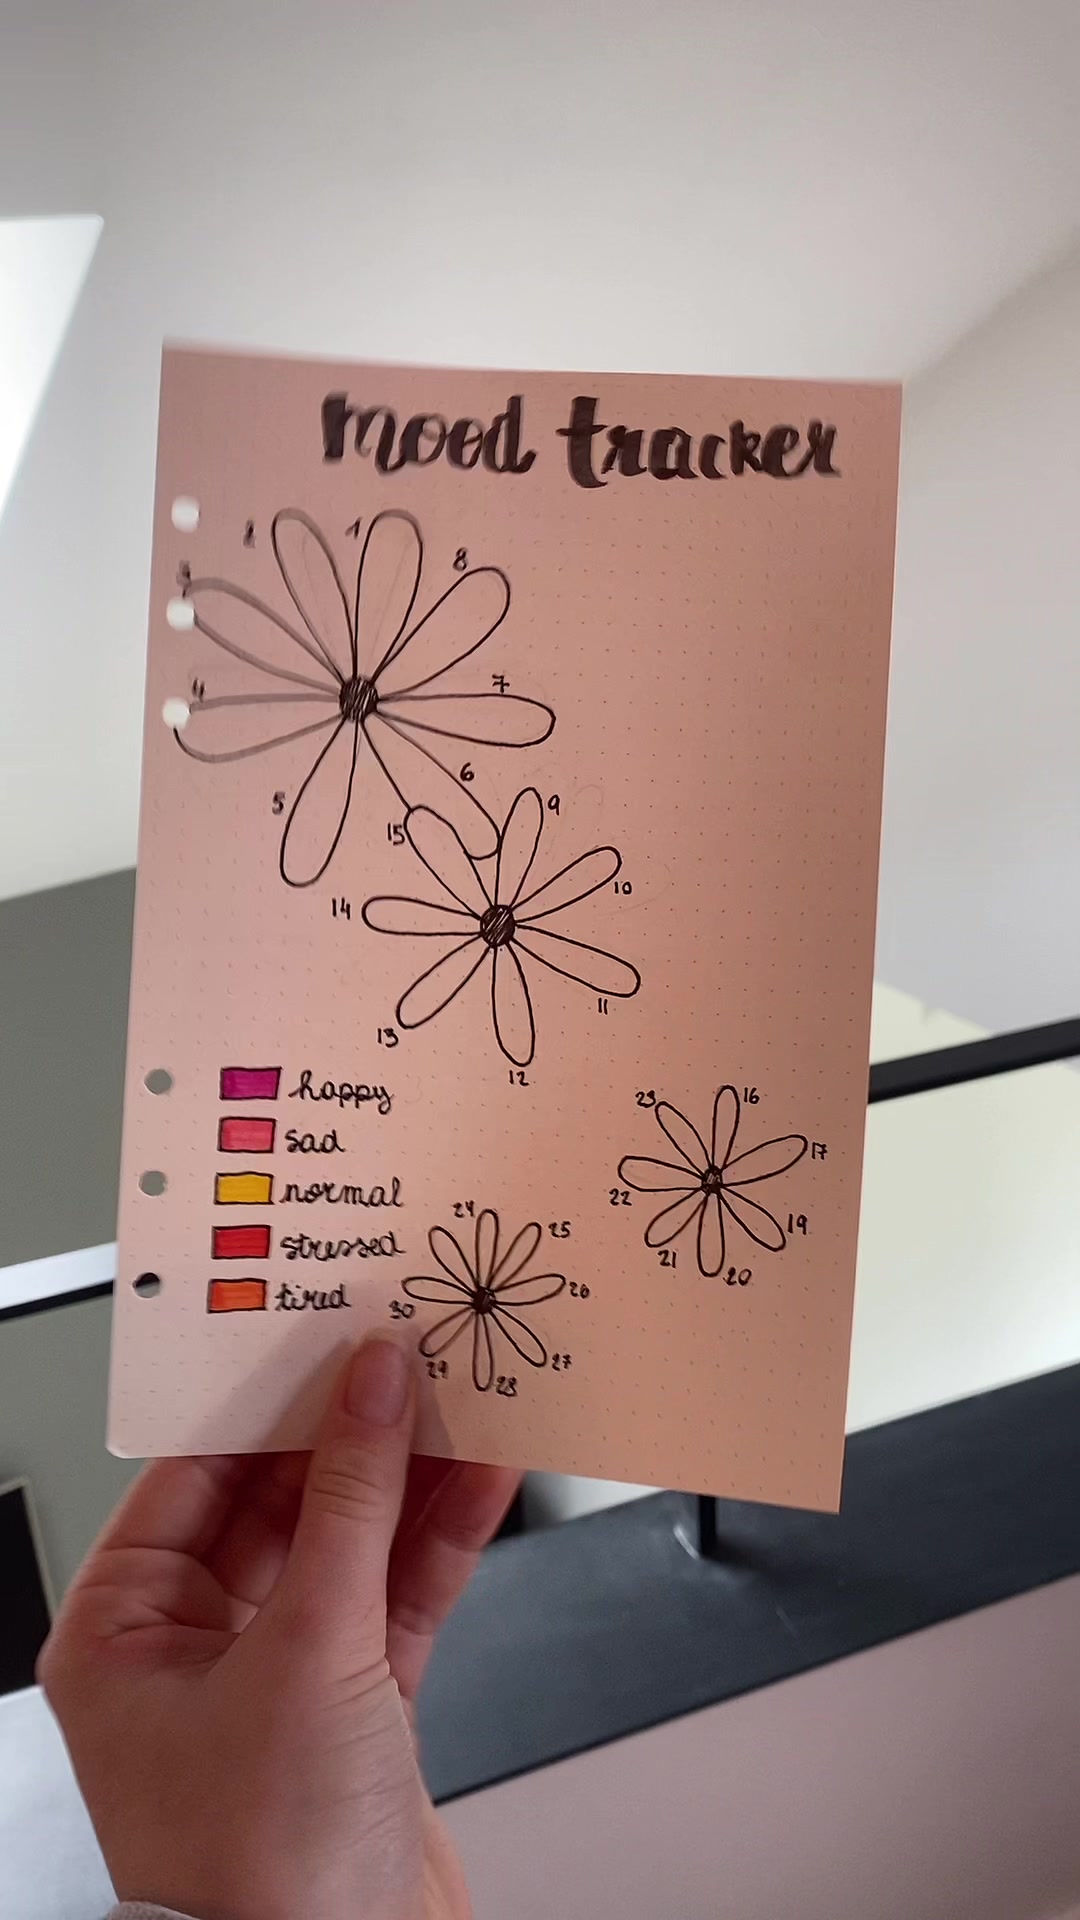 mood tracker
1
2
3
4
5
6
7
8
9
10
11
12
13
14
15
happy
sad
normal
stressed
tired
16
17
19
20
21
22
23
24
25
26
27
28
29
30